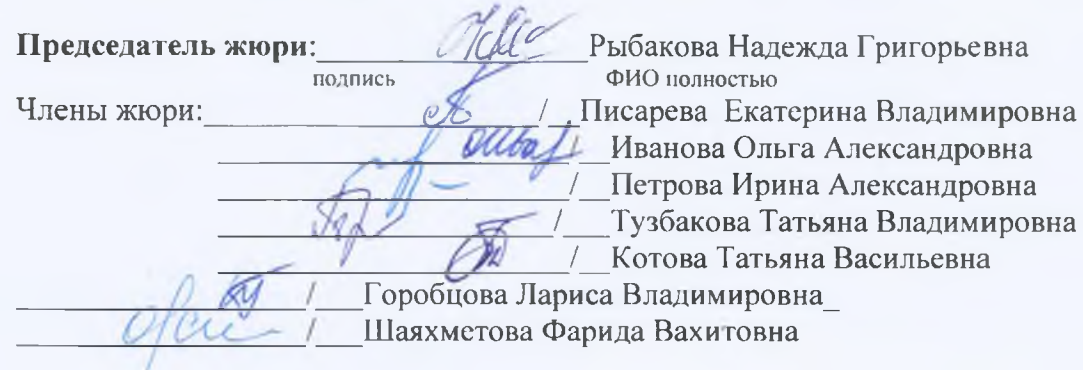 Председатель жюри:____________Рыбакова Надежда Григорьевна
подпись ФИО полностью
Члены жюри:____________/ Писарева Екатерина Владимировна
____________/__Иванова Ольга Александровна
____________/__Петрова Ирина Александровна
____________/__Тузбакова Татьяна Владимировна
____________/__Котова Татьяна Васильевна
____________/__Горобцова Лариса Владимировна_
____________/__Шаяхметова Фарида Вахитовна